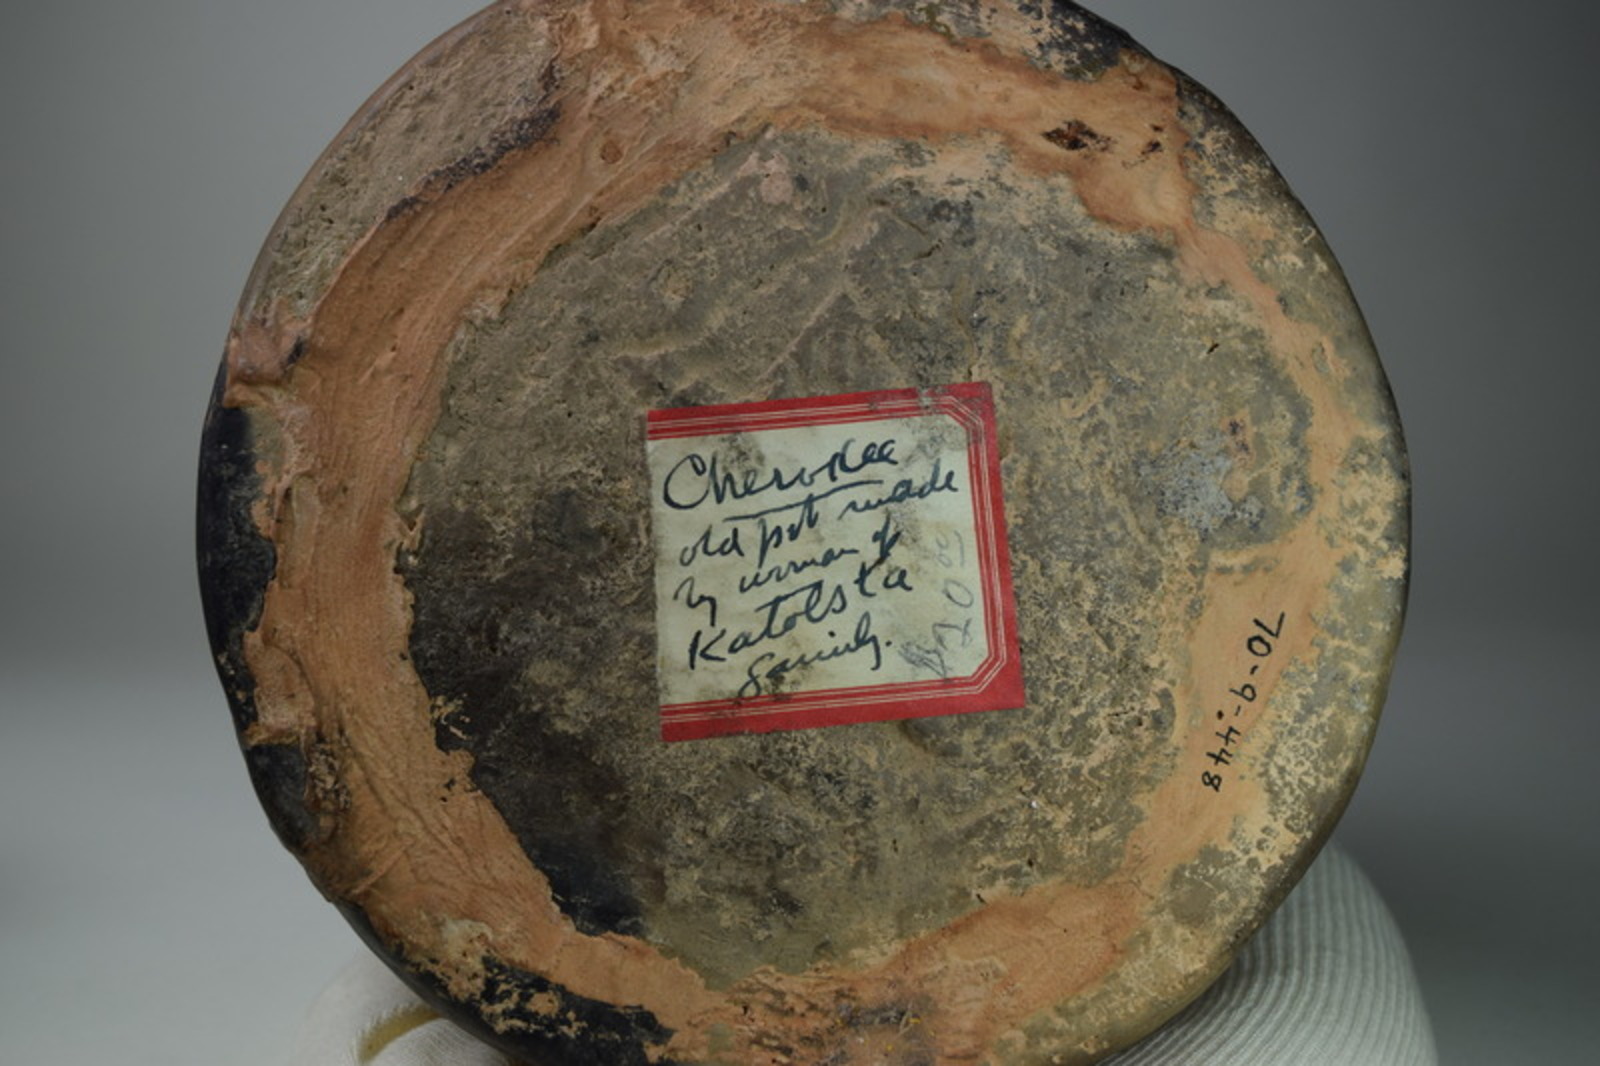 Cherokee
old pot made
by woman of
Katolsta
family.
$20.00
70-9-448